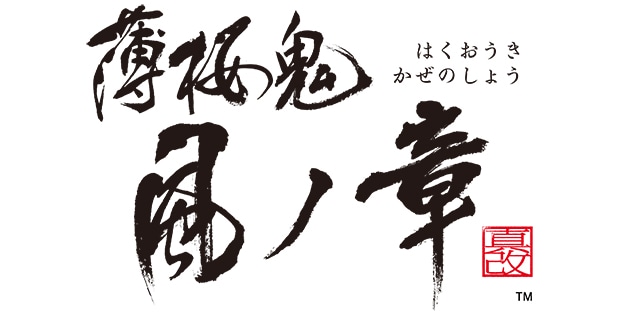 薄桜鬼
はくおうき
かぜのしょう
風ノ章
真改
TM